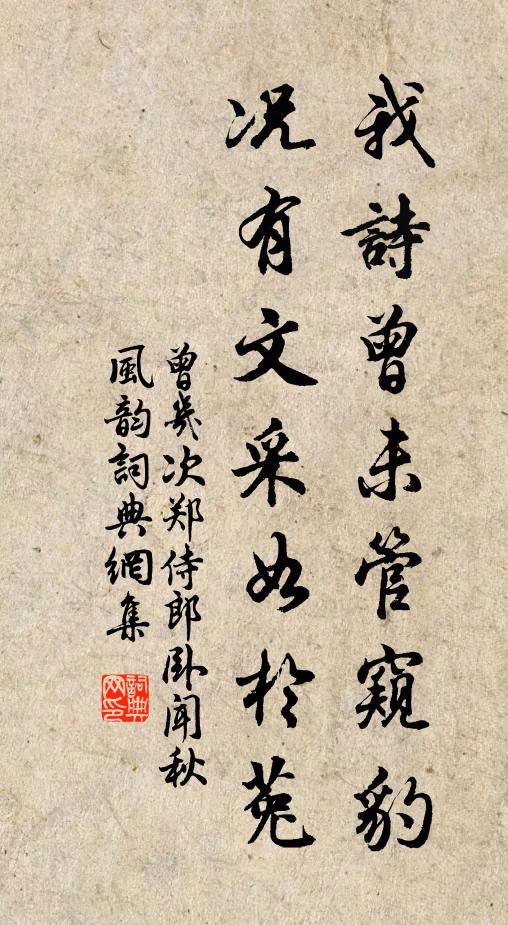 我詩曾未管窺豹
况有文采如於菟
曾幾次郑侍郎卧闻秋
風韵詞典網集
詞典网印